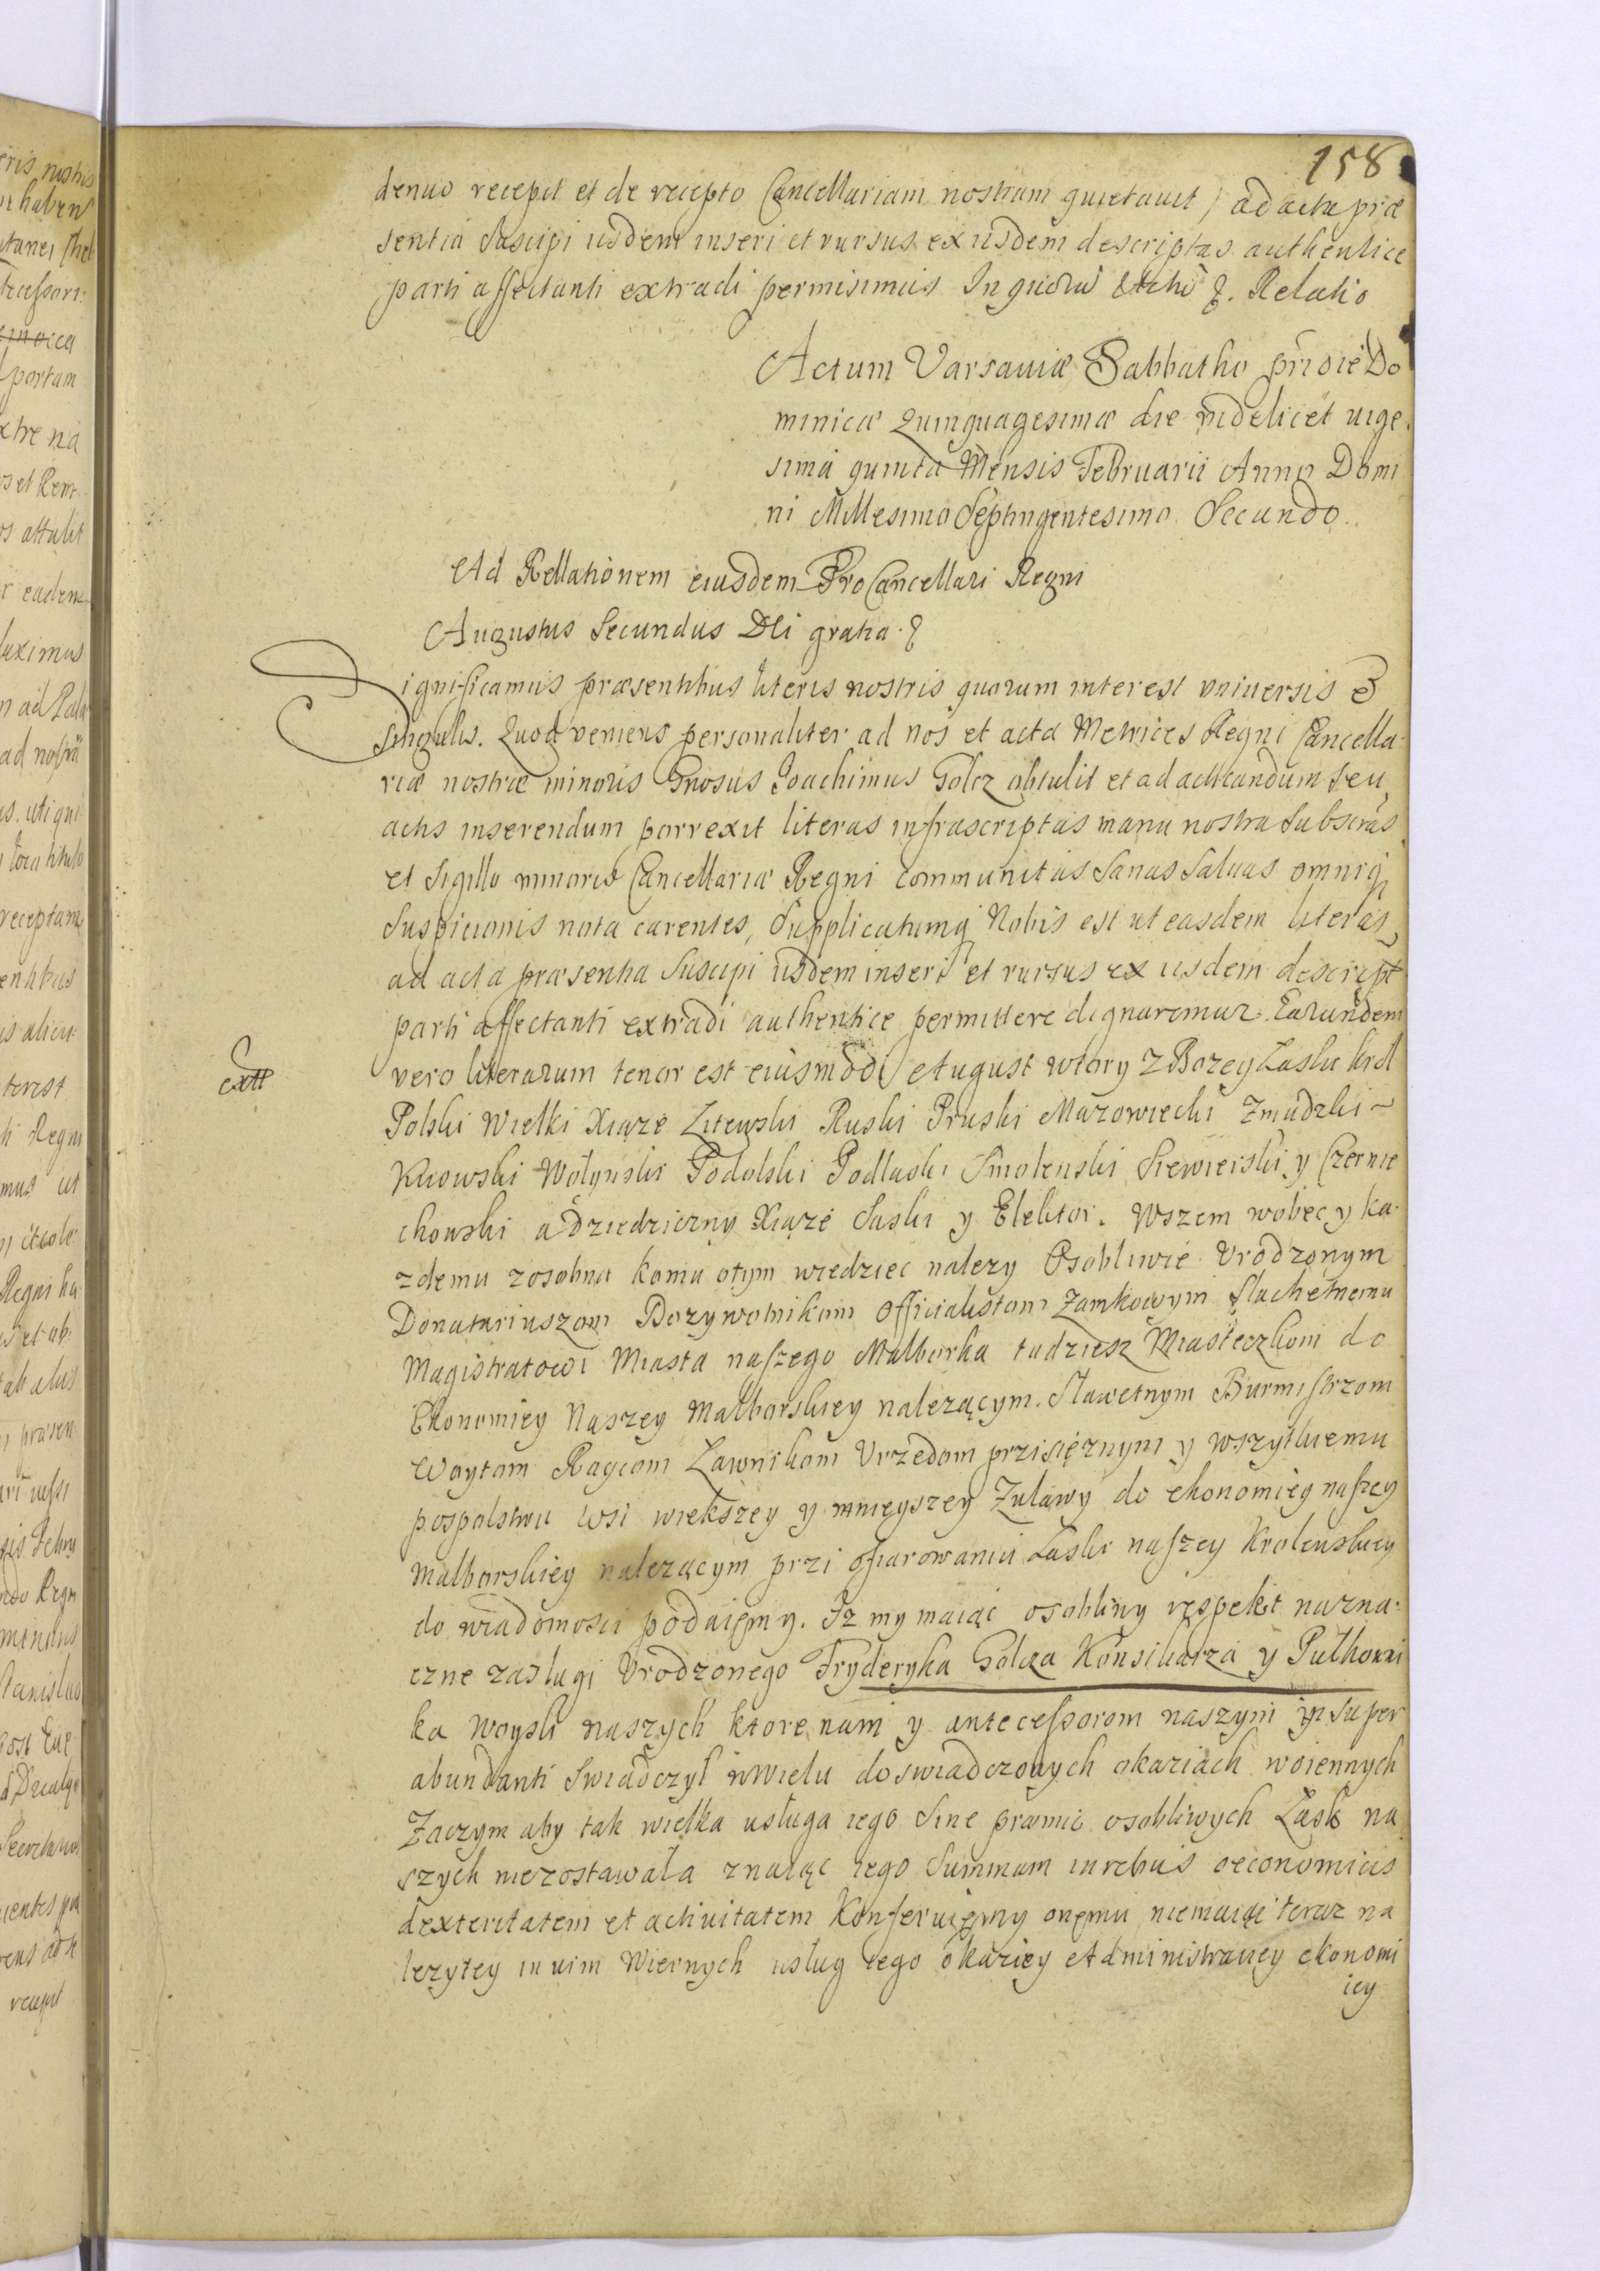 158
denuo recepit et de recepto Cancellariam nostram quietauit, ad acta præ
sentia suscipi iisdem inseri et rursus ex iisdem descriptas authentice
parti affectanti extradi permisimus In quorū &. Relatio
Actum Varsauiæ Sabbatho pridie Do
minicæ Quinquagesimæ die videlicet uige
sima quinta Mensis Februarii Anno Domi
ni Millesimo Septingentesimo Secundo
Ad Rellationem eiusdem ProCancellari Regni
Augustus Secundus Dei gratia &
Significamus præsentibus literis nostris quorum interest vniuersis &
singulis. Quod veniens personaliter ad nos et acta Metrices Regni Cancella
riæ nostræ minoris Gnosus Joachimus Golcz obtulit et ad acticandum seu
actis inserendum porrexit literas infrascriptas manu nostra subscras
et sigillo minoris Cancellariæ Regni communitas sanas saluas omniq
suspicionis nota carentes, supplicatumq Nobis est ut easdem literas
ad acta præsentia suscipi iisdem inseri et rursus ex iisdem descript
parti affectanti extradi authentice permittere dignaremur. Earundem
vero literarum tenor est eiusmodi August wtory z Bozey Laski krol
Polski Wielki Xiąze Litewski Ruski Pruski Mazowiecki Zmudzki
Kiiowski Wołynski Podolski Podlaski Smolenski Siewierski y Czernie
chowski a dziedziczny Xiąze Saski y Elektor. Wszem wobec y ka
zdemu zosobna komu otym wiedziec nalezy Osobliwie Vrodzonym
Donatariuszom Dozywotnikom officialistom Zamkowym Slachetnemu
Magistratowi Miasta naszego Malborka tudziesz Miasteczkom do
Ekonomiey Naszey Malborskiey nalezącym. Sławetnym Burmistrzom
Woytom Raycom Lawnikom Vrzedom przisięznym y wszytkiemu
pospolstwu wsi wiekszey y mnieyszey Zuławy do ekonomiey naszey
Malborskiey nalezącym przi ofiarowaniu Laski naszey Krolewskiey
do wiadomosci podaięmy. Iz my maiąc osobliwy respekt nazna
czne zasługi Vrodzonego Fryderyka Golcza Konsiliarza y Pułkowni
ka Woysk naszych ktore nam y antecessorom naszym in super
abundanti swiadczył w wielu doswiadczonych okaziach woiennych
Zaczym aby tak wielka usługa iego sine præmio osobliwych Lask na
szych niezostawała znaiąc iego summam in rebus oeconomicis
dexteritatem et actiuitatem Konferuięmy onęmu niemaiąc teraz na
lezytey in vim Wiernych usług iego okaziey Administracyey ekonomi
iey
Extt